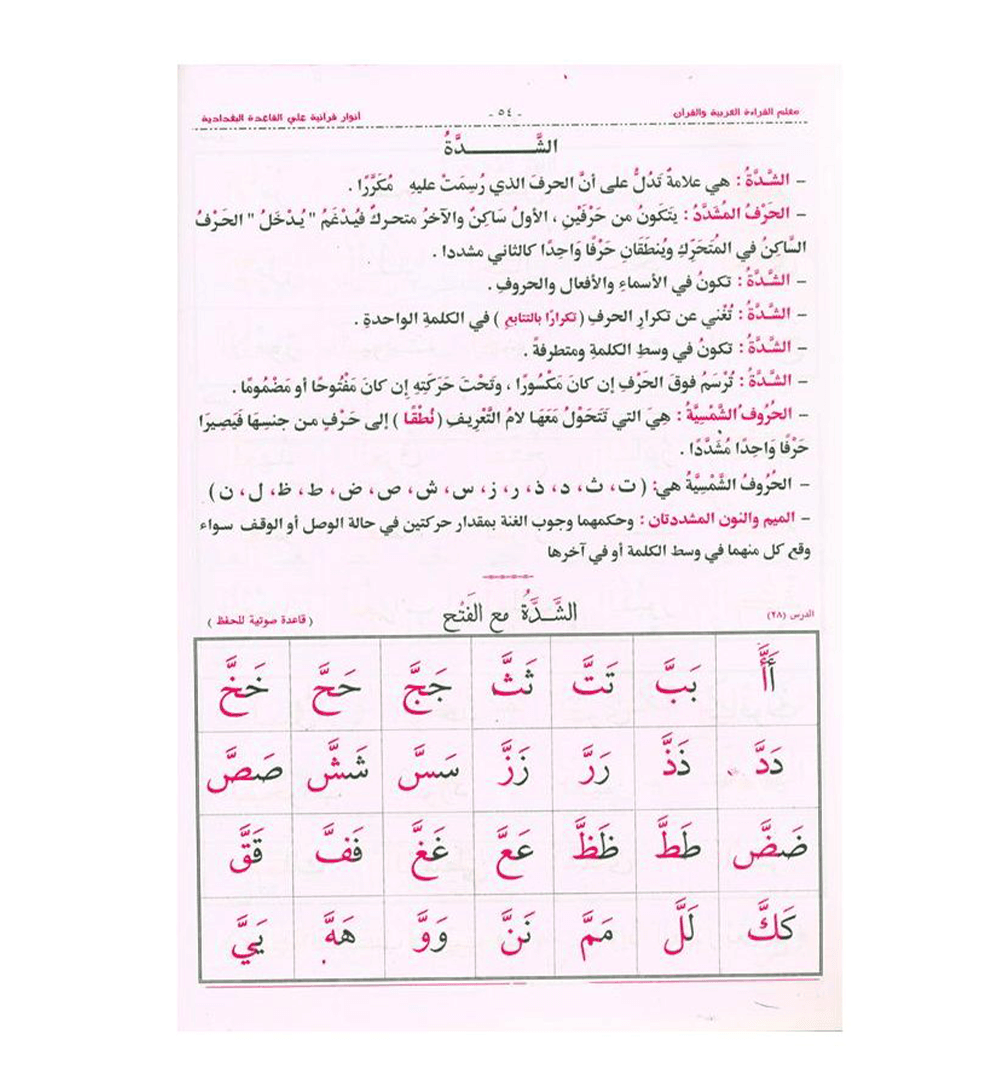 معلم القراءة العربية والقرآن - ٥٤ - أنوار قرآنية على القاعدة البغدادية
الشَّـــــدَّةُ
– الشَّدَّةُ : هي علامةٌ تَدُلُّ على أنَّ الحرفَ الذي رُسِمَتْ عليهِ مُكَرَّرًا .
– الحَرْفُ المُشَدَّدُ : يتَكَونُ من حَرْفَيْنِ ، الأولُ سَاكِنٌ والآخرُ متحركٌ فيُدْغَمُ " يُدْخَلُ " الحَرْفُ
السَّاكِنُ في المُتَحَرِّكِ ويُنطَقَانِ حَرْفًا وَاحِدًا كالثاني مشددا .
– الشَّدَّةُ : تكونُ في الأسماءِ والأفعال والحروفِ .
– الشَّدَّةُ : تُغْني عن تكرارِ الحرفِ ( تكرارًا بالتتابعِ ) في الكلمةِ الواحدةِ .
– الشَّدَّةُ : تكونُ في وسطِ الكلمةِ ومتطرفةً .
– الشَّدَّةُ : تُرْسَمُ فوقَ الحَرْفِ إن كانَ مَكْسُورًا ، وتَحْتَ حَرَكَتِهِ إن كانَ مَفْتُوحًا أو مَضْمُومًا .
– الحُرُوفُ الشَّمْسِيَّةُ : هِيَ التي تَتَحَوْلُ مَعَهَا لامُ التَّعْرِيفِ ( نُطْقًا ) إلى حَرْفٍ من جنسِهَا فَيَصِيرَا
حَرْفًا وَاحِدًا مُشَدَّدًا .
– الحُرُوفُ الشَّمْسِيَّةُ هي: ( ت ، ث ، د ، ذ ، ر ، ز ، س ، ش ، ص ، ض ، ط ، ظ ، ل ، ن )
– الميم والنون المشددتان : وحكمهما وجوب الغنة بمقدار حركتين في حالة الوصل أو الوقف سواء
وقع كل منهما في وسط الكلمة أو في آخرها
الدرس (٢٨) الشَّدَّةُ مع الفَتْح ( قاعدة صوتية للحفظ )
أَأَّ بَبَّ تَتَّ ثَثَّ جَجَّ حَحَّ خَخَّ
دَدَّ ذَذَّ رَرَّ زَزَّ سَسَّ شَشَّ صَصَّ
ضَضَّ طَطَّ ظَظَّ عَعَّ غَغَّ فَفَّ قَقَّ
كَكَّ لَلَّ مَمَّ نَنَّ وَوَّ هَهَّ يَيَّ